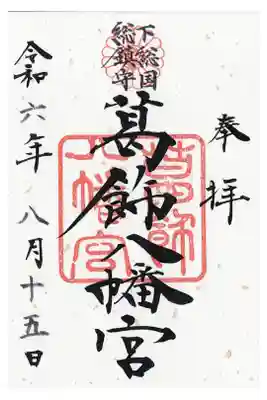 奉拝
下総国
総鎮守
葛飾八幡宮
葛飾
八幡宮
令和六年八月十五日